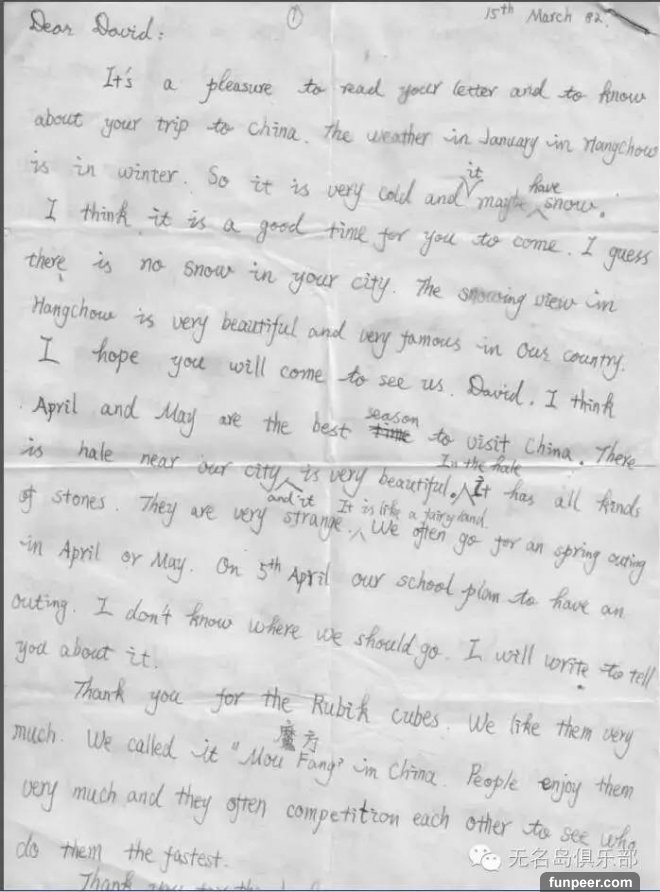 ①
15th March 82.
Dear David:
It's a pleasure to read your letter and to know
about your trip to China. The weather in January in Hangchow
is in winter. So it is very cold and it maybe have snow.
I think it is a good time for you to come. I guess
there is no snow in your city. The snowing view in
Hangchow is very beautiful and very famous in our country.
I hope you will come to see us. David, I think
April and May are the best season to visit China. There
is hale near our city and it is very beautiful. In the hale it has all kinds
of stones. They are very strange. It is like a fairy land. We often go for an spring outing
in April or May. On 5th April our school plan to have an
outing. I don't know where we should go. I will write to tell
you about it.
Thank you for the Rubik cubes. We like them very
much. We called it "Mou Fang" 魔方 in China. People enjoy them
very much and they often competition each other to see who
do them the fastest.
Thank you for the
无名岛俱乐部
funpeer.com